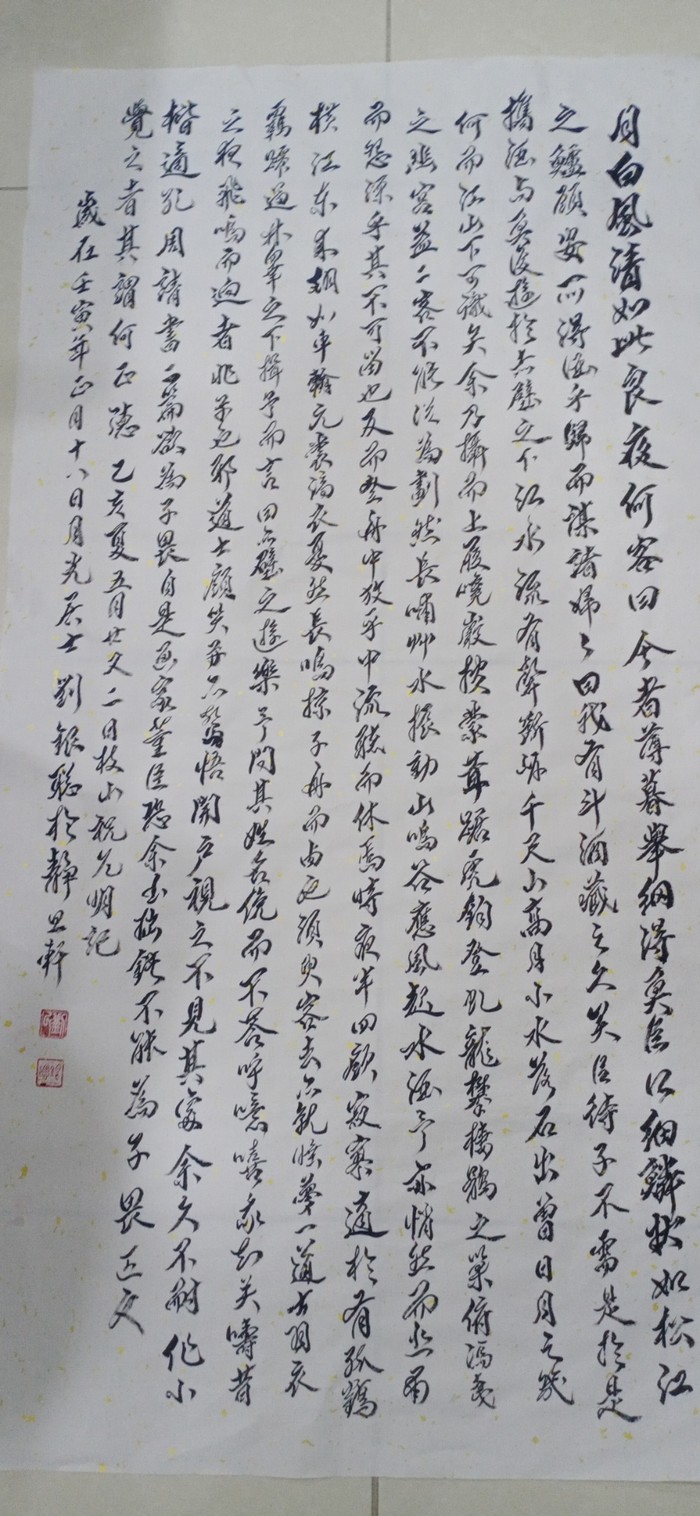 月白風清如此良夜何客曰今者薄暮舉網得魚巨口細鱗狀如松江
之鱸顧安所得酒乎歸而謀諸婦々曰我有斗酒藏之久矣以待子不需是於是
攜酒與魚復遊於赤壁之下江水流有聲斷岸千尺山高月小水落石出曾日月之幾
何而江山不可識矣余乃攝而上履巉巖披蒙茸踞虎豹登虬龍攀棲鶻之巢俯馮夷
之幽宮蓋二客不能從焉劃然長嘯艸木振動山鳴谷應風起水涌予亦悄然而悲肅
而恐凜乎其不可留也反而登舟中放乎中流聽而休焉時夜半四顧寂寥適於有孤鶴
橫江東來翅如車輪元裳縞衣戛然長鳴掠予舟而西也須臾客去亦就睡夢一道士羽衣
翩躚過林皋之下揖予而言曰赤壁之遊樂乎問其姓名俛而不答呼噫嘻我知矣疇昔
之夜飛鳴而過者非子也邪道士顧笑予亦驚悟開戶視之不見其處余久不耐作小
楷適孔周請書二篇欲為子畏自是當家董
覺之者其謂何正德乙亥夏五月廿又二日枝山祝允明記
歲在壬寅年正月十八日月光居士劉銀聰於靜思軒